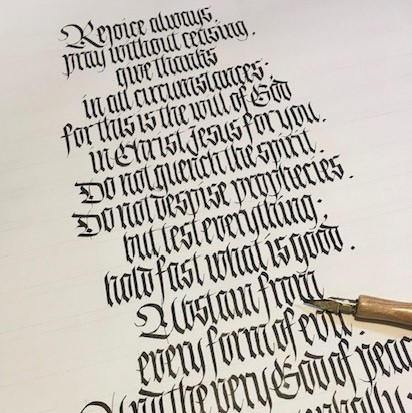 Rejoice always.
pray without ceasing.
give thanks
in all circumstances.
for this is the will of God
in Christ Jesus for you.
Do not quench the spirit.
Do not despise prophecies.
but test everything.
hold fast what is good.
Abstain from
every form of evil.
And the very God of peac
wholly